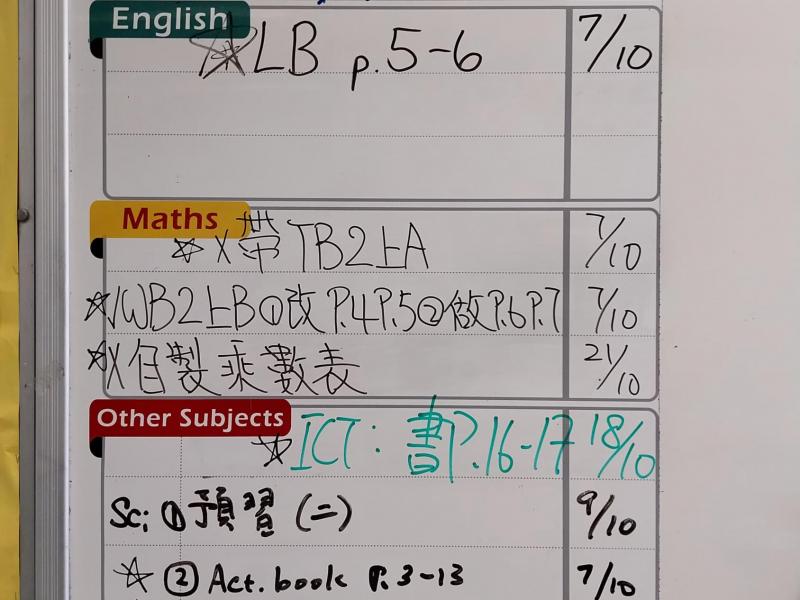 English
☆LB p.5-6 7/10
Maths
☆X帶TB2上A 7/10
☆√WB2上B①改P.4P.5②做P.6P.7 7/10
☆X自製乘數表 21/10
Other Subjects
☆ICT：書P.16-17 18/10
Sc: ①預習(二) 9/10
☆②Act. book P.3-13 7/10